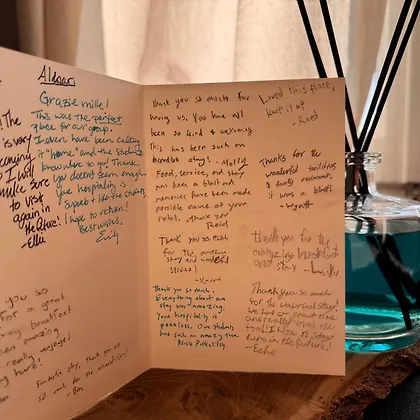 Aldgar
Grazie mille!
This was the perfect
place for our group.
I even have been calling
it "home" and the students
know where to go! Thank
you doesn't seem enough.
Your hospitality is
superb & like the students,
I hope to return!
Best wishes,
Emily
The
is very
I will
make sure
to visit
again in
the future!
-Ella
you so
for a great
breakfast!
been amazing
really enjoyed
Fantastic stay, thank you all
so much for the
-Ben
Thank you so much for
having us. You have all
been so kind & welcoming.
This has been such an
incredible stay! -Molly
Food, service, and stay
has been a blast and
memories have been made
possible cause of your
hotel. Thank you
Thank you so much
for the amazing
stay and wonderful
service!
Thank you so much-
Everything about our
stay was amazing.
Your hospitality is
peerless. Our students
had such an amazing time.
Nick
Loved this place,
keep it up
Thanks for the
wonderful facilities
& lovely
it was a blast.
-Wyatt
Thank you for the
amazing breakfast
and stay
Thank you so much
for the wonderful stay!
we had a great time
and really loved the
food! I hope to stay
here in the future!
-Echo